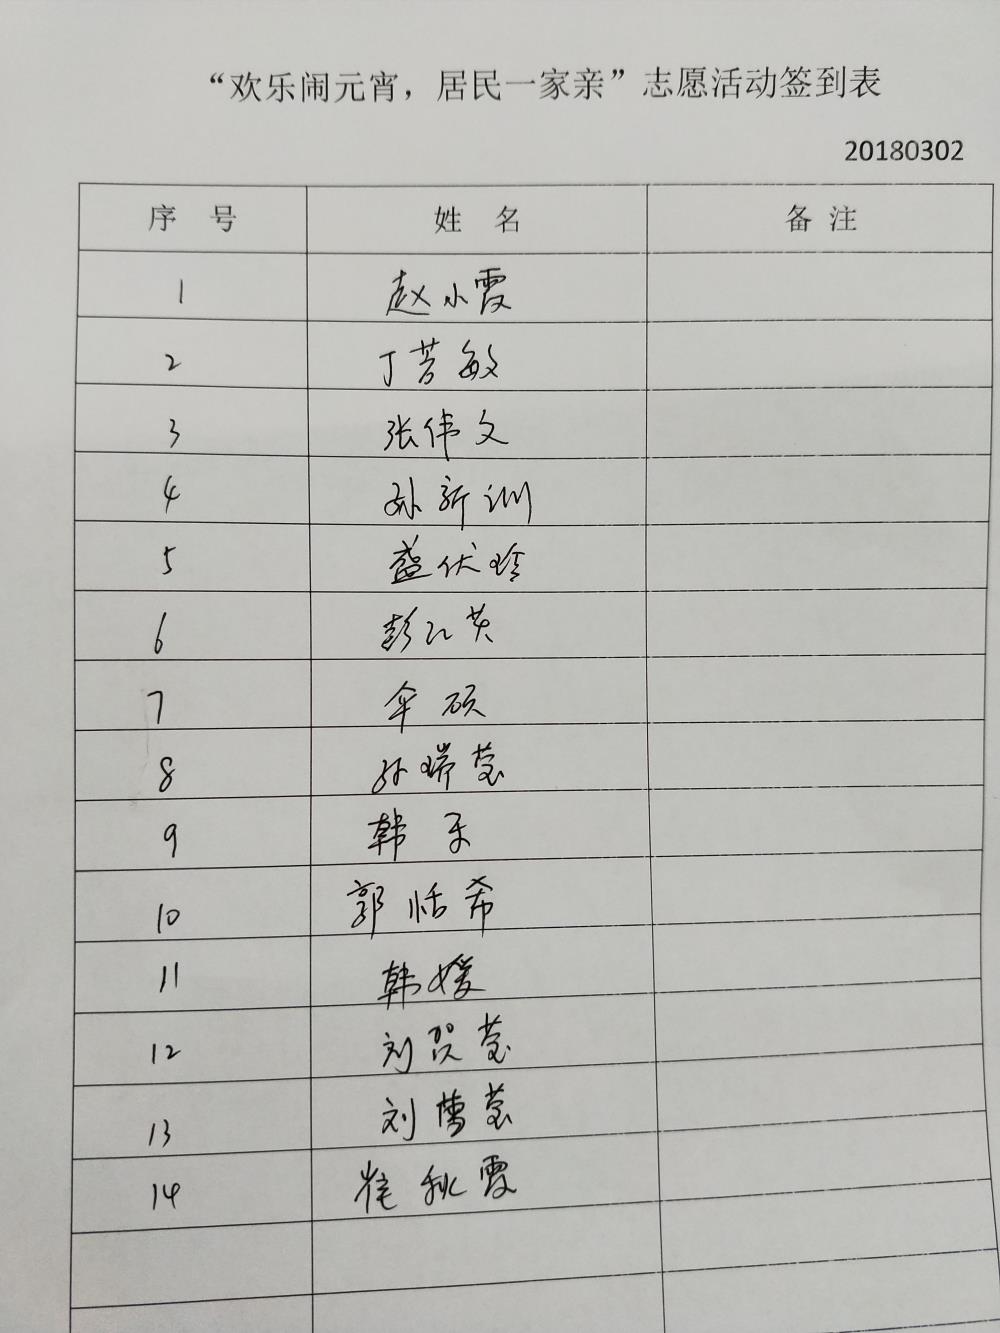 “欢乐闹元宵，居民一家亲”志愿活动签到表
20180302
序 号 姓 名 备 注
1 赵小霞
2 丁芳敏
3 张伟文
4 孙新训
5 盛伏玲
6 彭红英
7 伞硕
8 孙瑞莹
9 韩乐
10 郭恬希
11 韩媛
12 刘贺莹
13 刘莹
14 崔秋霞